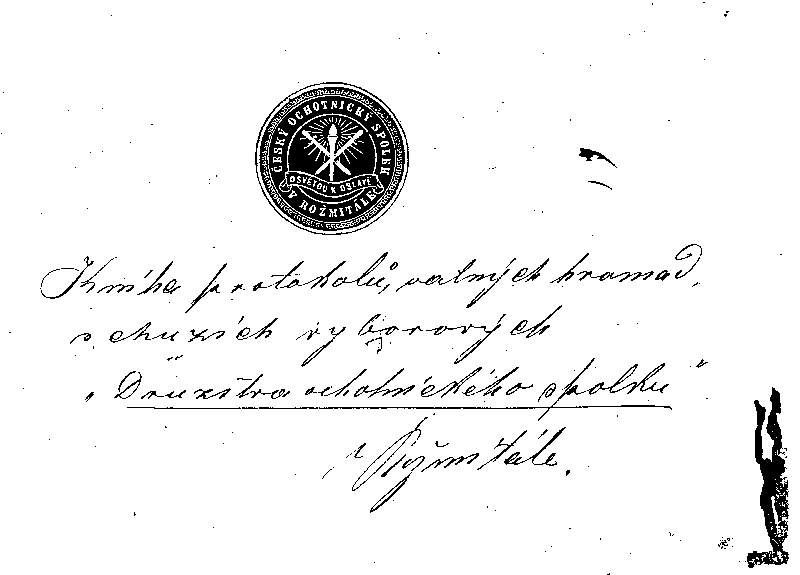 ČESKÝ OCHOTNICKÝ SPOLEK
OSVĚTOU K OSLAVĚ
V ROŽMITÁLE
Kniha protokolů, valných hromad,
schuzích vyborových
„Druzstva ochotnického spolku"
v Rožmitále.